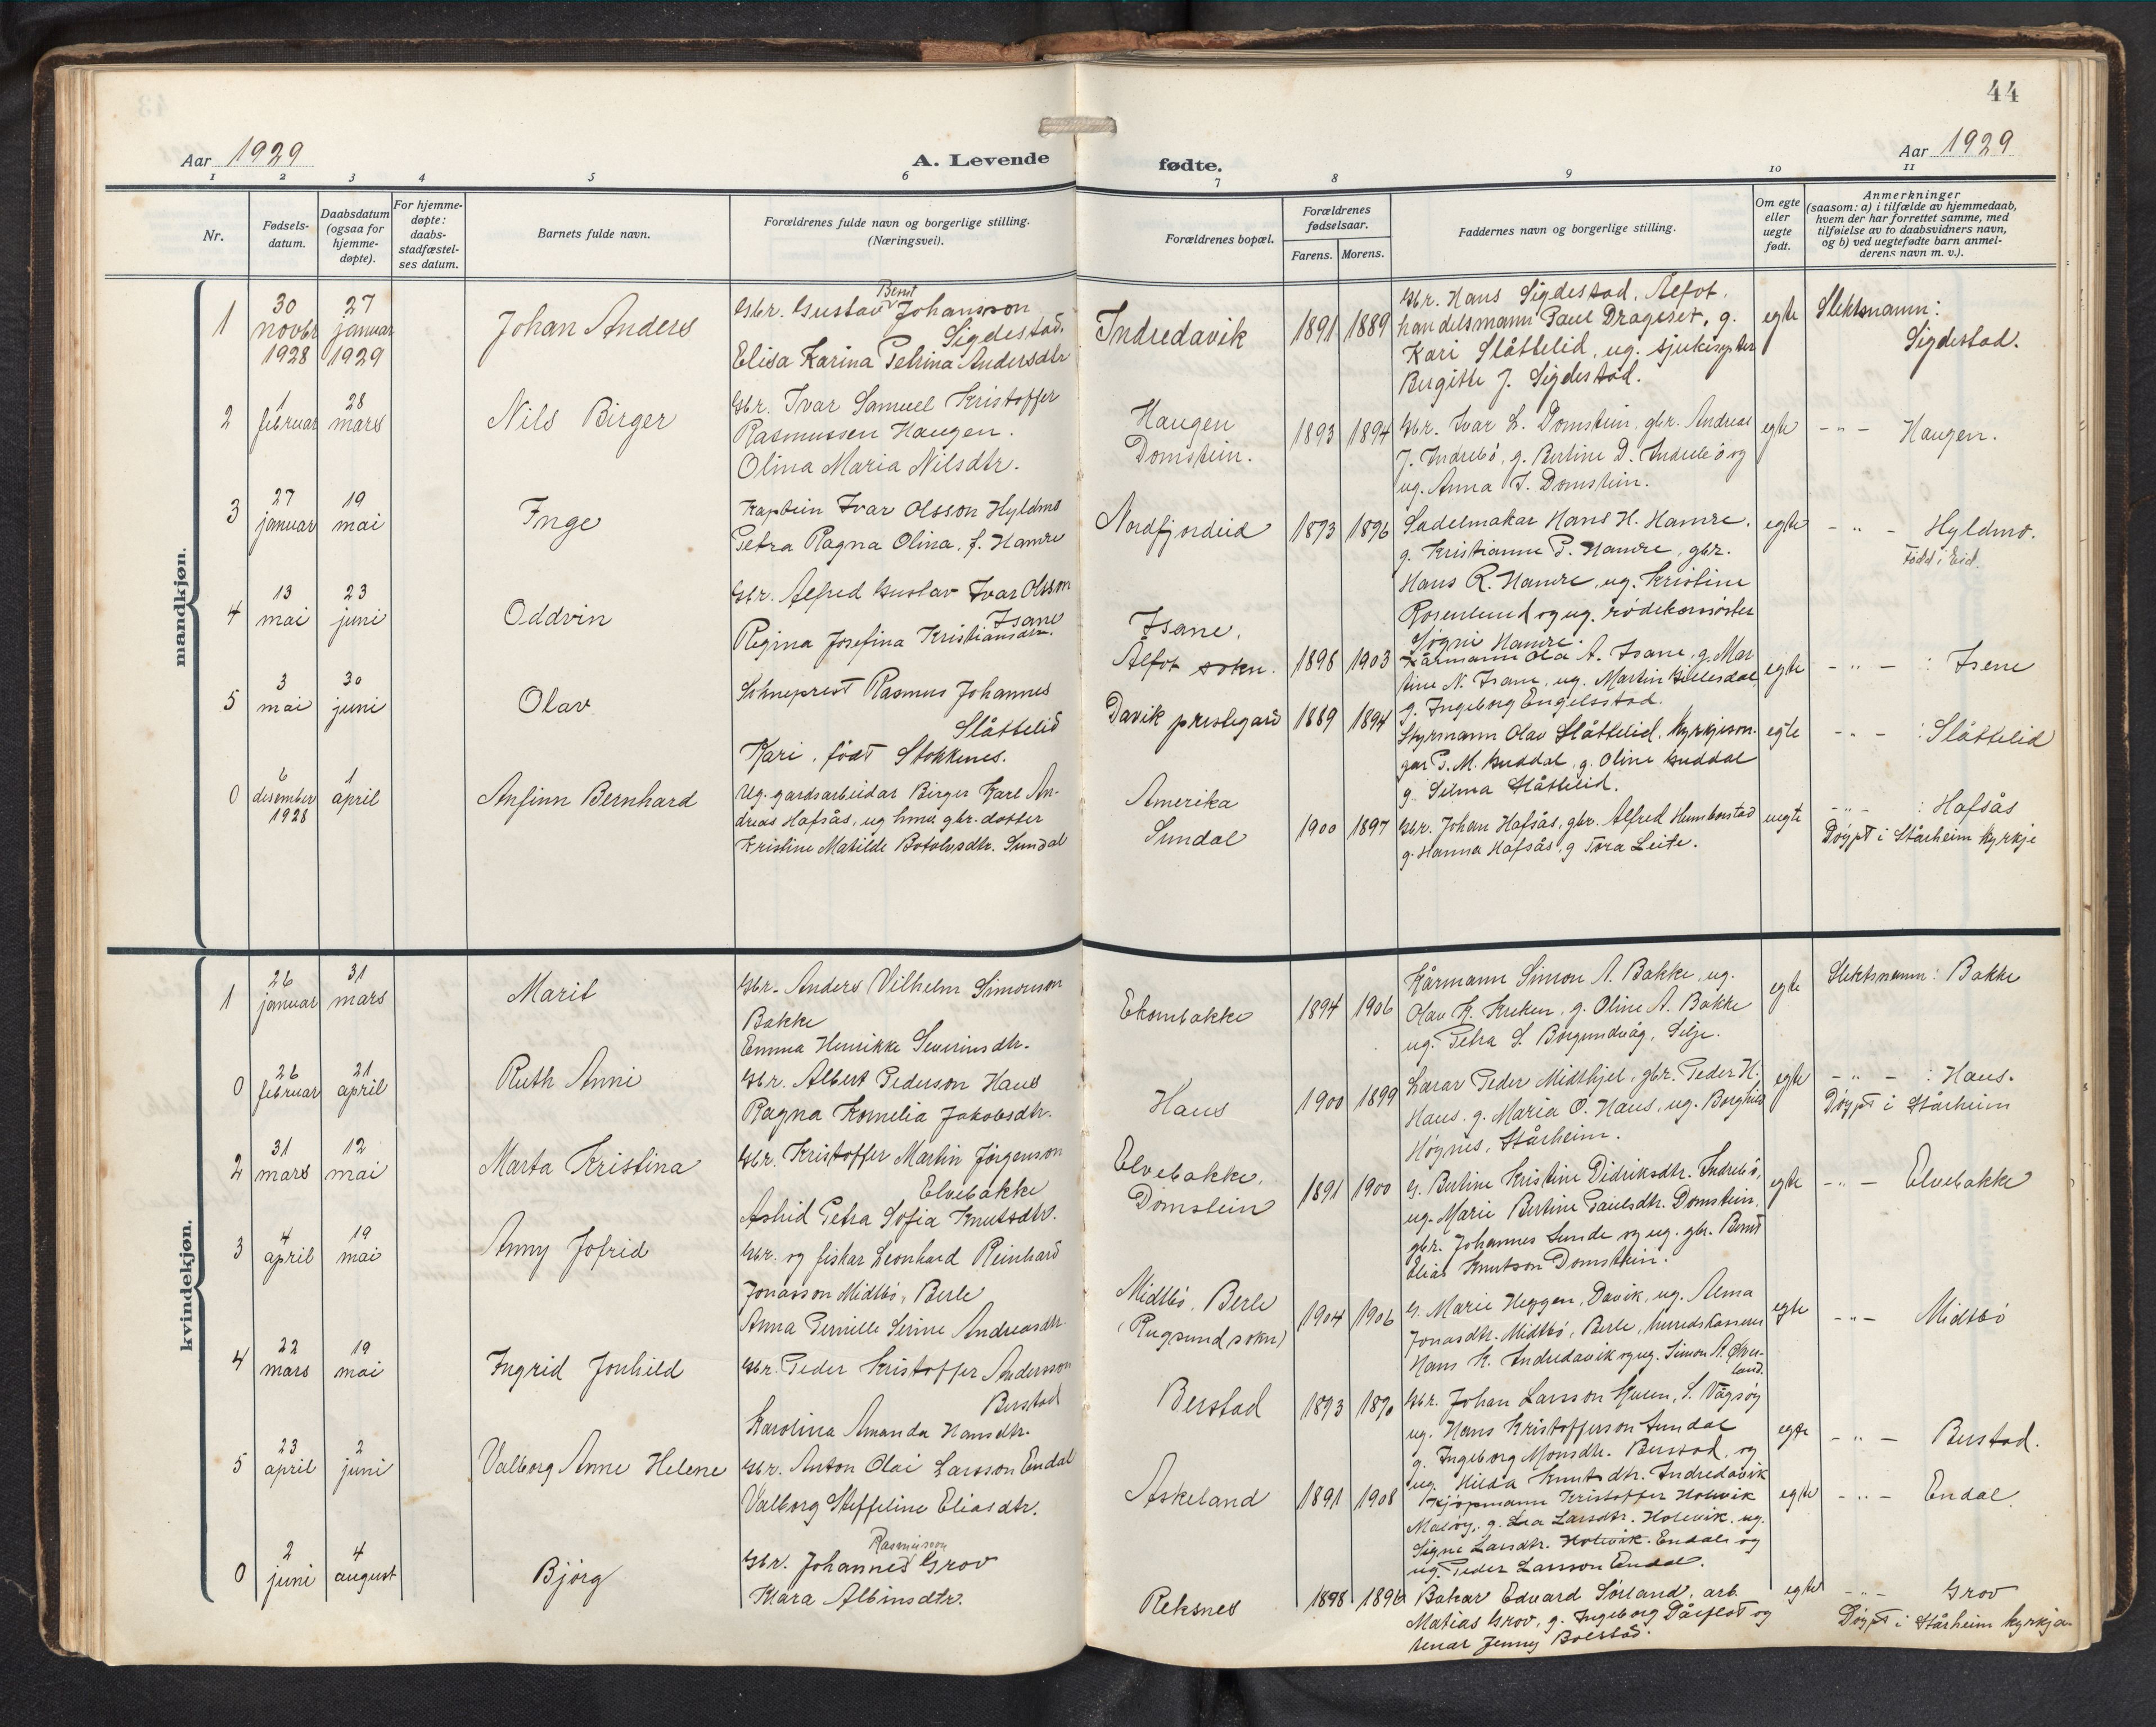 44
Aar 1929
A. Levende
fødte.
Aar 1929
1 2 3 4 5 6 7 8 9 10 11
Nr.
Fødsels-
datum.
Daabsdatum
(ogsaa for
hjemme-
døpte).
For hjemme-
døpte:
daabs-
stadfæstel-
ses datum.
Barnets fulde navn.
Forældrenes fulde navn og borgerlige stilling.
(Næringsvei).
Forældrenes bopæl.
Forældrenes
fødselsaar.
Farens. Morens.
Faddernes navn og borgerlige stilling.
Om egte
eller
uegte
født.
Anmerkninger
(saasom: a) i tilfælde av hjemmedaab,
hvem der har forrettet samme, med
tilføielse av to daabsvidners navn,
og b) ved uegtefødte barn anmel-
derens navn m. v.).
mandkjøn.
1
30
novbr
1928
27
januar
1929
Johan Anders
Bernt
Gbr. Gustav Johansson
Sigdestad.
Elisa Karina Petrina Andersdtr
Indredavik
1891 1889
Gbr. Hans Sigdestad, Ålfot,
handelsmann Paul Drageset, g.
Kari Slåttelid, ug. sjukesyster
Birgitte J. Sigdestad.
egte
Slektsnamn:
Sigdestad.
2
1
februar
28
mars
Nils Birger
Gbr. Ivar Samuel Kristoffer
Rasmussen Haugen.
Olina Maria Nilsdtr.
Haugen
Domstein.
1893 1894
Gbr. Ivar L. Domstein, gbr. Andreas
J. Indrebö, g. Bertine D. Indrebö og
ug. Anna I. Domstein.
egte
-"- Haugen.
3
27
januar
19
mai
Inge
Kaptein Ivar Olsson Hyldmo
Petra Ragna Olina, f. Hamre
Nordfjordeid
1893 1896
Sadelmakar Hans H. Hamre,
g. Kristianne P. Hamre, gbr.
Hans R. Hamre, ug. Kristine
Rosenlund og ug. rödekorssöster
Søgni Hamre.
egte
-"- Hyldmo.
Född i Eid.
4
13
mai
23
juni
Oddvin
Gbr. Alfred Gustav Ivar Olsson
Isane
Regina Josefina Kristiansdtr.
Isane,
Ålfot sokn.
1898 1903
Kårmann Ola A. Isane, g. Mar
tine N. Isane, ug. Martin Gillesdal,
g. Ingeborg Engelsstad.
egte
-"- : Isene
5
3
mai
30
juni
Olav
Sokneprest Rasmus Johannes
Slåttelid
Kari, født Stokkenes.
Davik prestegard
1889 1894
Styrmann Olav Slåttelid, kyrkjeson-
gar P. M. Guddal, g. Oline Guddal
g. Selma Slåttelid.
egte
-"- : Slåttelid
0
6
desember
1928
1
april
Anfinn Bernhard
Ug. gardsarbeidar Birger Karl An-
dreas Hafsås, ug hma gbr.-dotter
Kristine Matilde Botolvsdtr. Sundal
Amerika
Sundal
1900 1897
Gbr. Johan Hafsås, gbr. Alfred Humborstad
g. Hanna Hafsås, g Tora Leite.
uegte
-"- : Hafsås
Döypt i Stårheim kyrkje
kvindekjøn.
1
26
januar
31
mars
Marit
Gbr. Anders Vilhelm Simonson
Bakke
Emma Henrikke Severinsdtr.
Ekombakke
1894 1906
Kårmann Simon A. Bakke, ug.
Olav K. Kreken, g. Oline A. Bakke
ug. Petra S. Borgundvåg, Selje.
egte
Slektsnamn: Bakke
0
26
februar
21
april
Ruth Anni
Gbr. Albert Pederson Haus
Ragna Kornelia Jakobsdtr.
Haus
1900 1899
Lærar Peder Midthjel, gbr. Peder H.
Haus, g. Maria O. Haus, ug. Borghild
Høgnes, Stårheim.
egte
-"- : Haus.
Döypt i Stårheim
2
31
mars
12
mai
Marta Kristina
Gbr. Kristoffer Martin Jörgenson
Elvebakke
Astrid Petra Sofia Knutsdtr.
Elvebakke,
Domstein
1891 1900
G. Bertine Kristine Didriksdtr. Indrebö,
ug. Marie Bertine Paulsdtr. Domstein,
gbr. Johannes Lunde og ug. gbr. Bernt
Elias Knutson Domstein.
egte
-"- Elvebakke
3
4
april
19
mai
Anny Jofrid
Gbr. og fiskar Leonhard Reinhard
Jonasson Midtbö, Berle
Anna Pernille Serine Andreasdtr.
Midtbö, Berle
(Rugsund sokn)
1904 1906
G. Marie Heggen, Davik, ug. Alma
Jonasdtr. Midtbö, Berle, herredskasserer
Hans K. Indredavik og ug. Simon A. Øver-
land.
egte
-"- Midtbö
4
22
mars
19
mai
Ingrid Jonhild
Gbr. Peder Kristoffer Andersson
Berstad
Karolina Amanda Hansdtr.
Berstad
1893 1890
Gbr. Johan Larsson Kjeen, S. Vågsöy
ug. Hans Kristofferson Sundal
g. Ingeborg Monsdtr. Berstad, og
ug. Hilda Knutsdtr. Indredavik
egte
-"- Berstad.
5
23
april
2
juni
Valborg Anne Helene
Gbr. Anton Olai Larsson Endal
Valborg Steffeline Eliasdtr.
Askeland
1891 1908
Kjöpmann Kristoffer Holevik
Måløy, g. Lea Larsdtr. Holevik, ug.
Signe Larsdtr. Holevik. Endal og
ug. Peder Larsson Endal.
egte
-"- Endal.
0
2
juni
4
august
Bjørg
Rasmusson
Gbr. Johannes Grov
Klara Albinsdtr.
Reksnes
1898 1896
Bakar Edvard Sörland, arb.
Matias Grov, g. Ingeborg Dårflot og
tenar Jenny Bolstad.
egte
-"- Grov
Döypt i Stårheim kyrkja